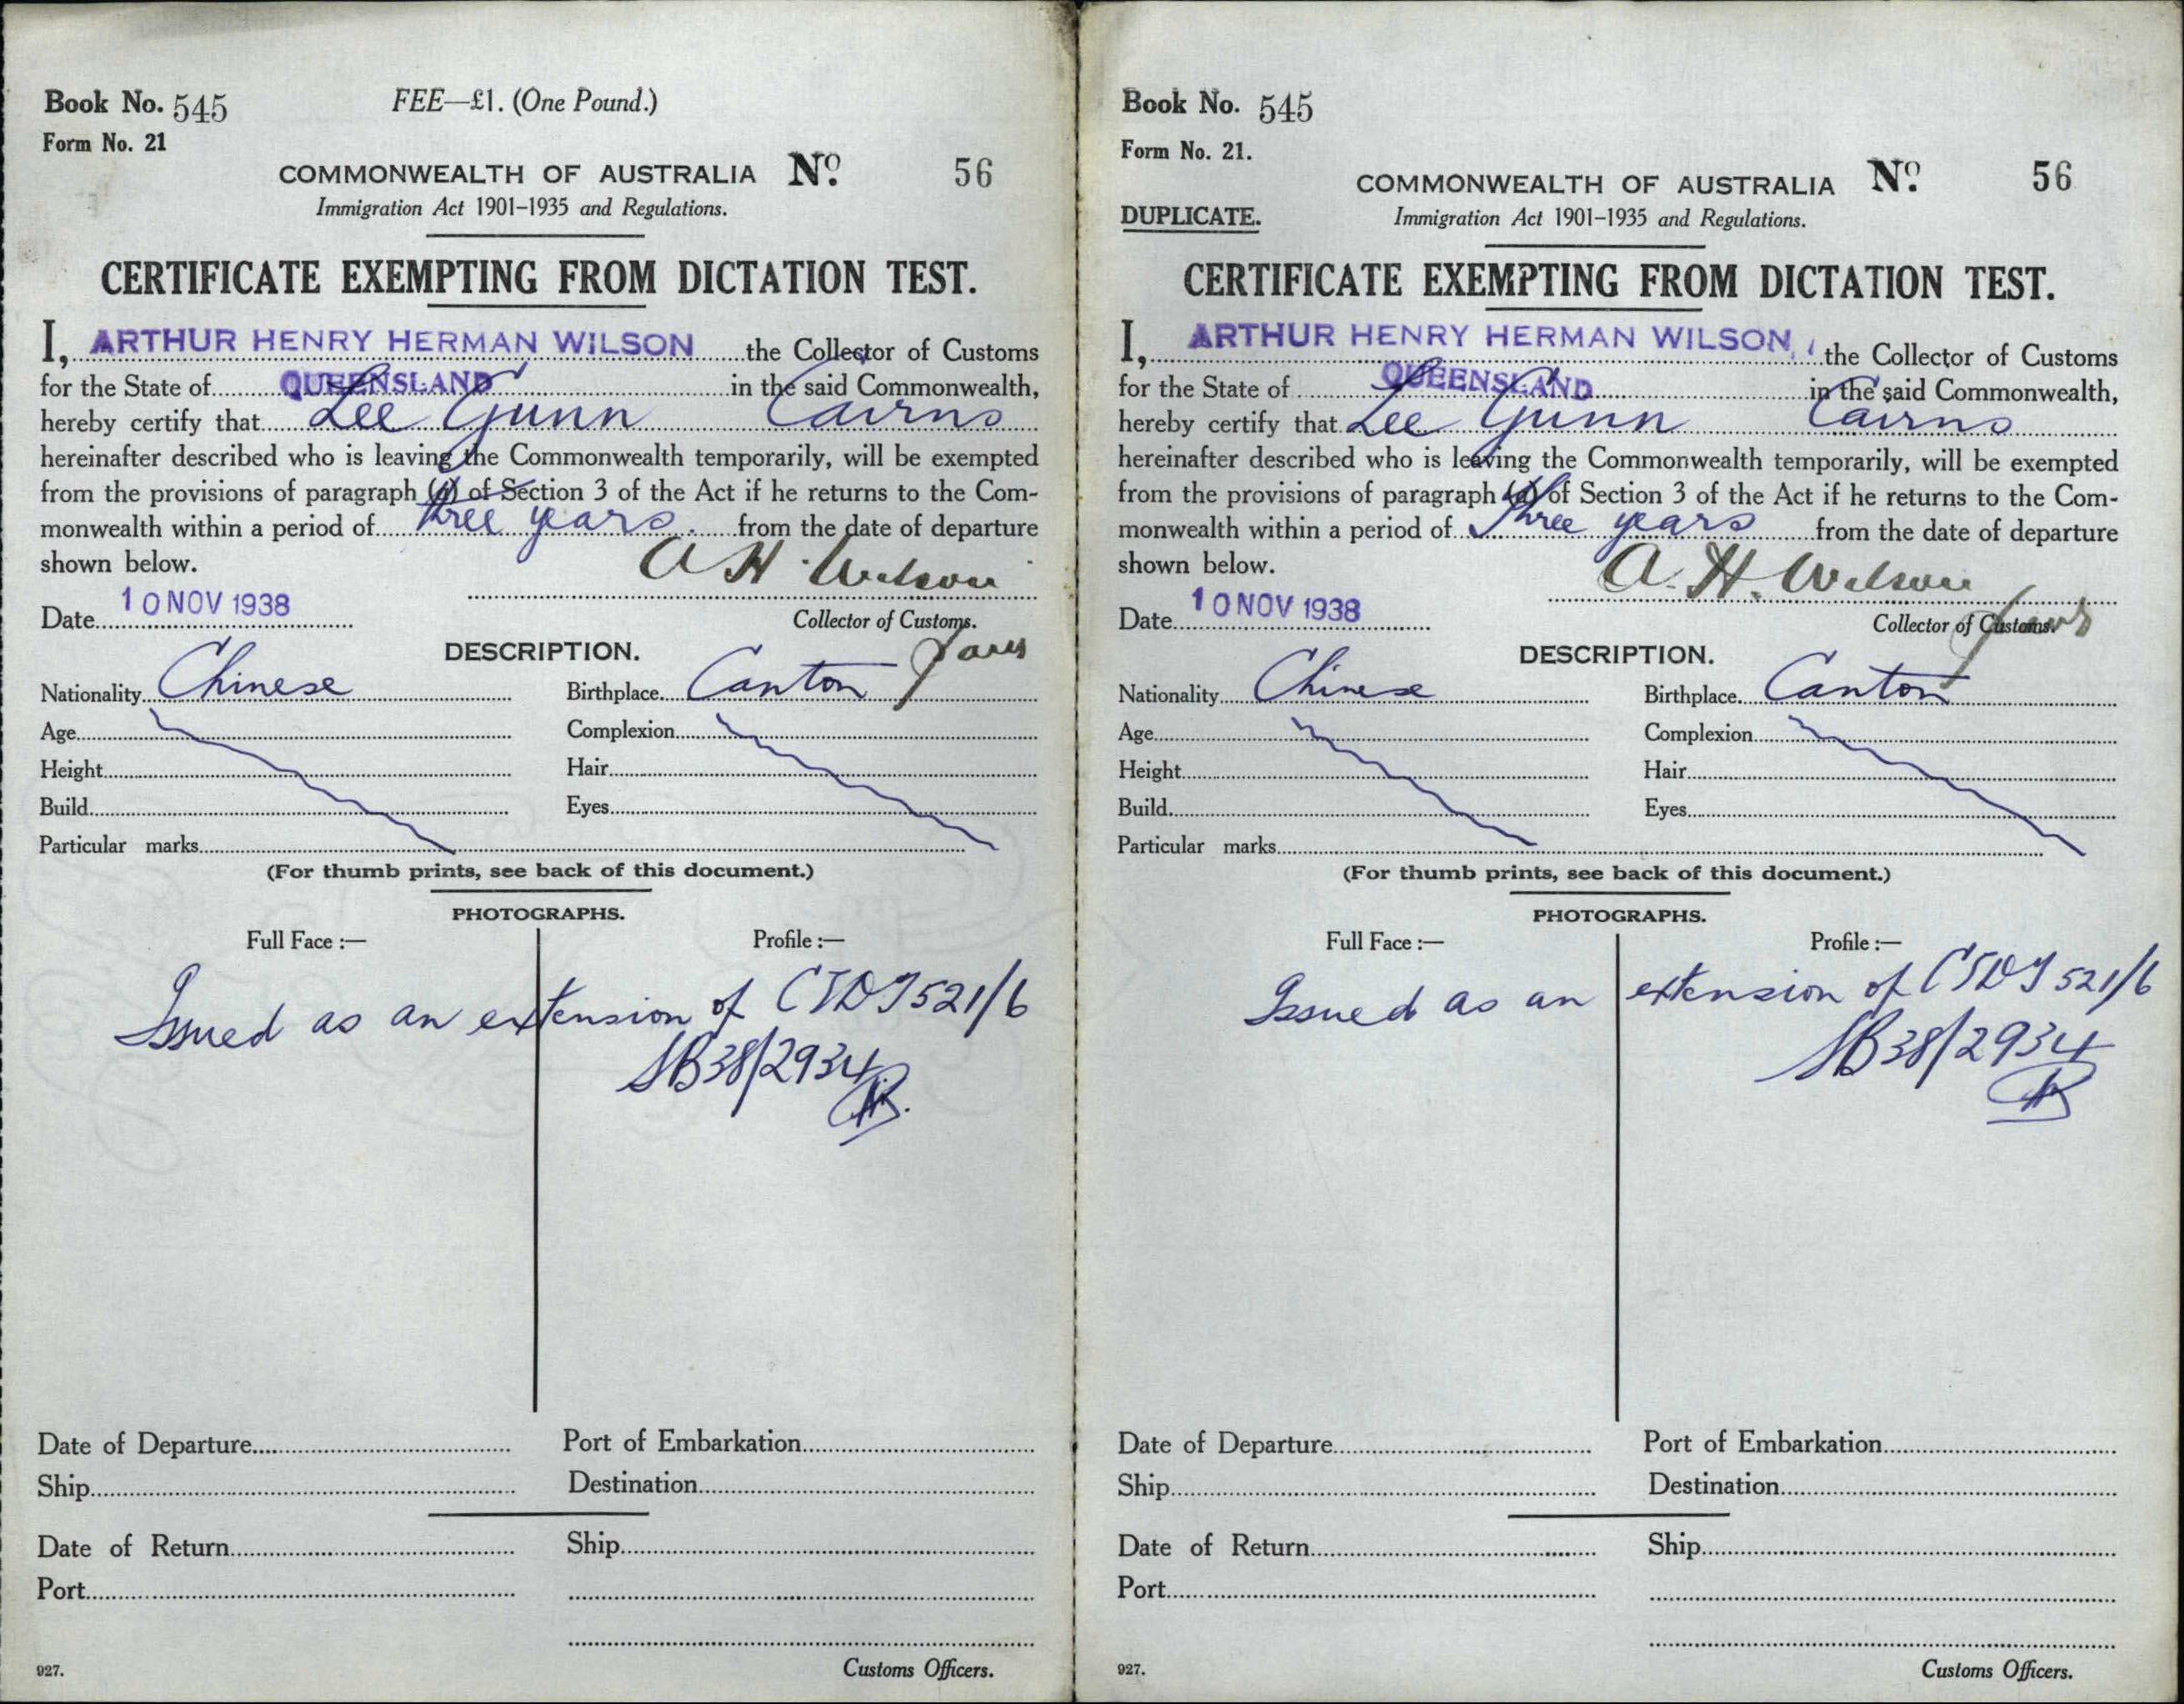 Book No. 545
FEE—£1. (One Pound.)
Form No. 21
COMMONWEALTH OF AUSTRALIA No. 56
Immigration Act 1901–1935 and Regulations.
CERTIFICATE EXEMPTING FROM DICTATION TEST.
I, ARTHUR HENRY HERMAN WILSON the Collector of Customs
for the State of QUEENSLAND in the said Commonwealth,
hereby certify that Lee Gunn Cairns
hereinafter described who is leaving the Commonwealth temporarily, will be exempted
from the provisions of paragraph (a) of Section 3 of the Act if he returns to the Com-
monwealth within a period of three years. from the date of departure
shown below.
A H Wilson
Date 10 NOV 1938
Collector of Customs.
DESCRIPTION.
Nationality Chinese Birthplace Canton
Age Complexion
Height Hair
Build Eyes
Particular marks
(For thumb prints, see back of this document.)
PHOTOGRAPHS.
Full Face :— Profile :—
Issued as an extension of CEDT 521/6
SB38/2934
Date of Departure Port of Embarkation
Ship Destination
Date of Return Ship
Port
927. Customs Officers.
Book No. 545
Form No. 21.
COMMONWEALTH OF AUSTRALIA No. 56
DUPLICATE.
Immigration Act 1901–1935 and Regulations.
CERTIFICATE EXEMPTING FROM DICTATION TEST.
I, ARTHUR HENRY HERMAN WILSON, the Collector of Customs
for the State of QUEENSLAND in the said Commonwealth,
hereby certify that Lee Gunn Cairns
hereinafter described who is leaving the Commonwealth temporarily, will be exempted
from the provisions of paragraph (a) of Section 3 of the Act if he returns to the Com-
monwealth within a period of three years from the date of departure
shown below.
A. H. Wilson
Date 10 NOV 1938
Collector of Customs.
DESCRIPTION.
Nationality Chinese Birthplace Canton
Age Complexion
Height Hair
Build Eyes
Particular marks
(For thumb prints, see back of this document.)
PHOTOGRAPHS.
Full Face :— Profile :—
Issued as an extension of CEDT 521/6
SB38/2934
Date of Departure Port of Embarkation
Ship Destination
Date of Return Ship
Port
927. Customs Officers.